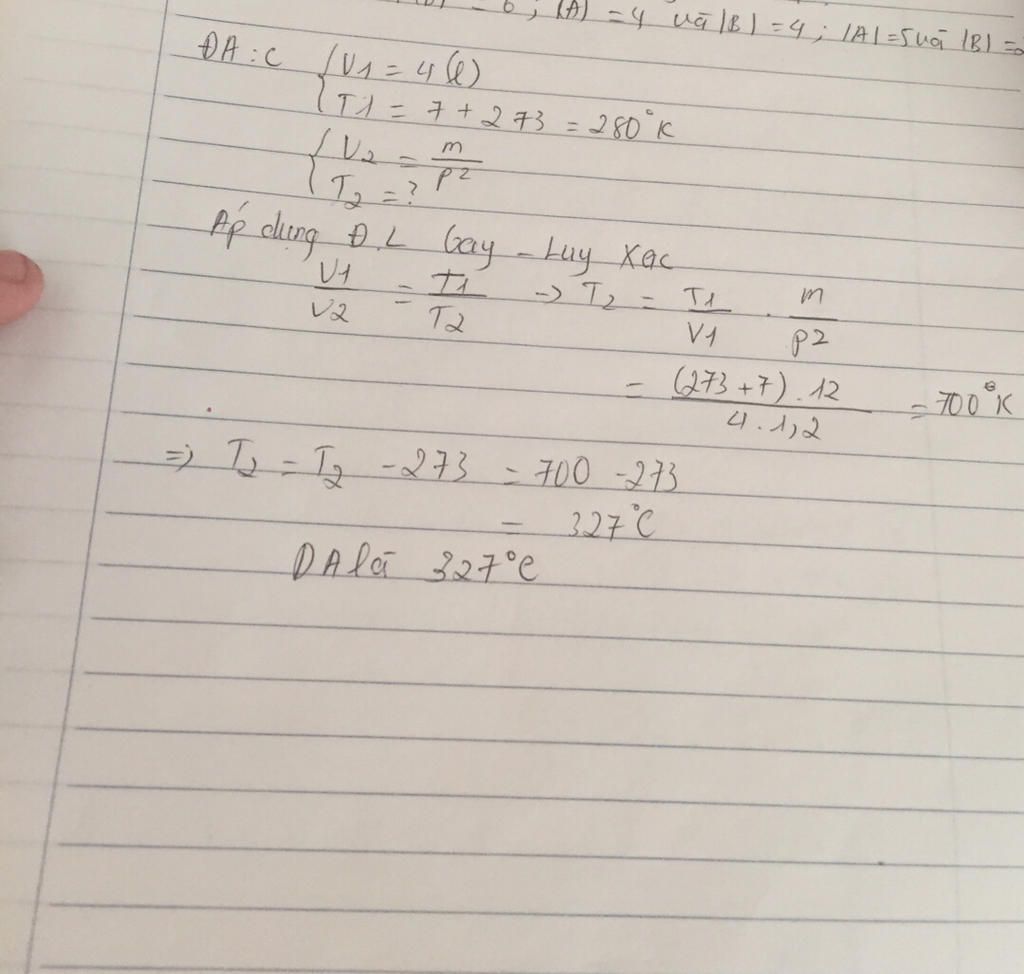 = 6 ; |A| = 4 và |B| = 4 ; |A| = 5 và |B| =
ĐA : C { V1 = 4 (l)
T1 = 7 + 273 = 280°K
{ V2 = m/p2
T2 = ?
Áp dụng Đ.L Gay - Luy Xac
V1/V2 = T1/T2 -> T2 = T1/V1 . m/p2
= (273 + 7) . 12 / 4 . 1,2 = 700°K
=> T2 = T2 - 273 = 700 - 273
= 327°C
ĐA là 327°C